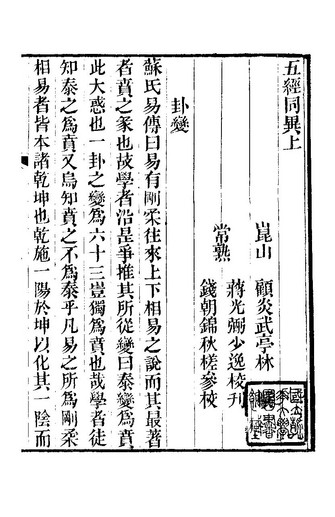 五經同異上
崑山　顧炎武亭林
蔣光弼少逸校刊
常熟
錢朝錦秋槎參校
卦變
蘇氏易傳曰易有剛柔往來上下相易之說而其最著
者賁之彖也故學者沿是爭推其所從變曰泰變爲賁
此大惑也一卦之變爲六十三豈獨爲賁也哉學者徒
知泰之爲賁又烏知賁之不爲泰乎凡易之所爲剛柔
相易者皆本諸乾坤也乾施一陽於坤以化其一陰而